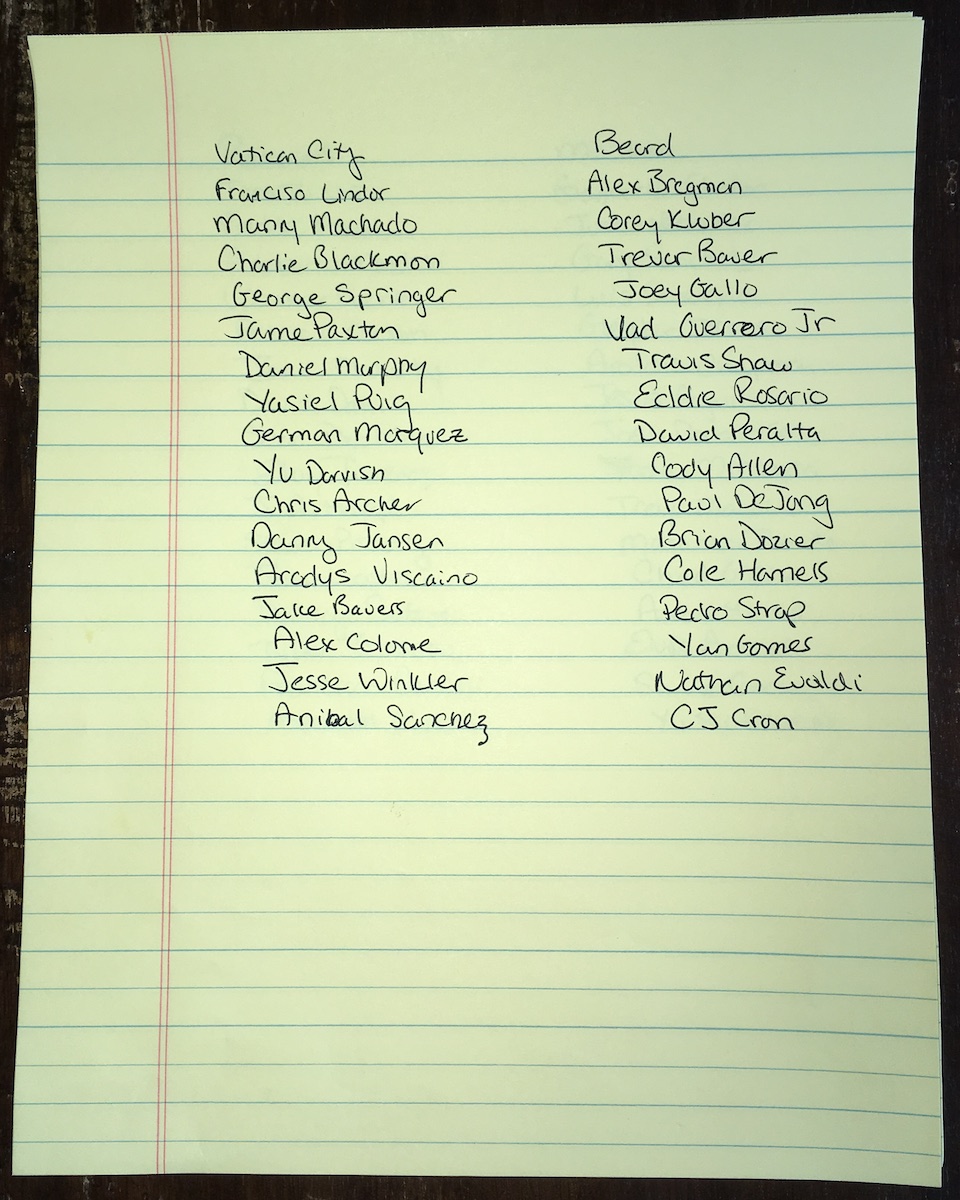 Vatican City Beard
Franciso Lindor Alex Bregman
Manny Machado Corey Kluber
Charlie Blackmon Trevor Bauer
George Springer Joey Gallo
Jame Paxton Vlad Guerrero Jr
Daniel Murphy Travis Shaw
Yasiel Puig Eddie Rosario
German Marquez David Peralta
Yu Darvish Cody Allen
Chris Archer Paul DeJong
Danny Jansen Brian Dozier
Arodys Viscaino Cole Hamels
Jake Bauers Pedro Strop
Alex Colome Yan Gomes
Jesse Winkler Nathan Evaldi
Anibal Sanchez CJ Cron